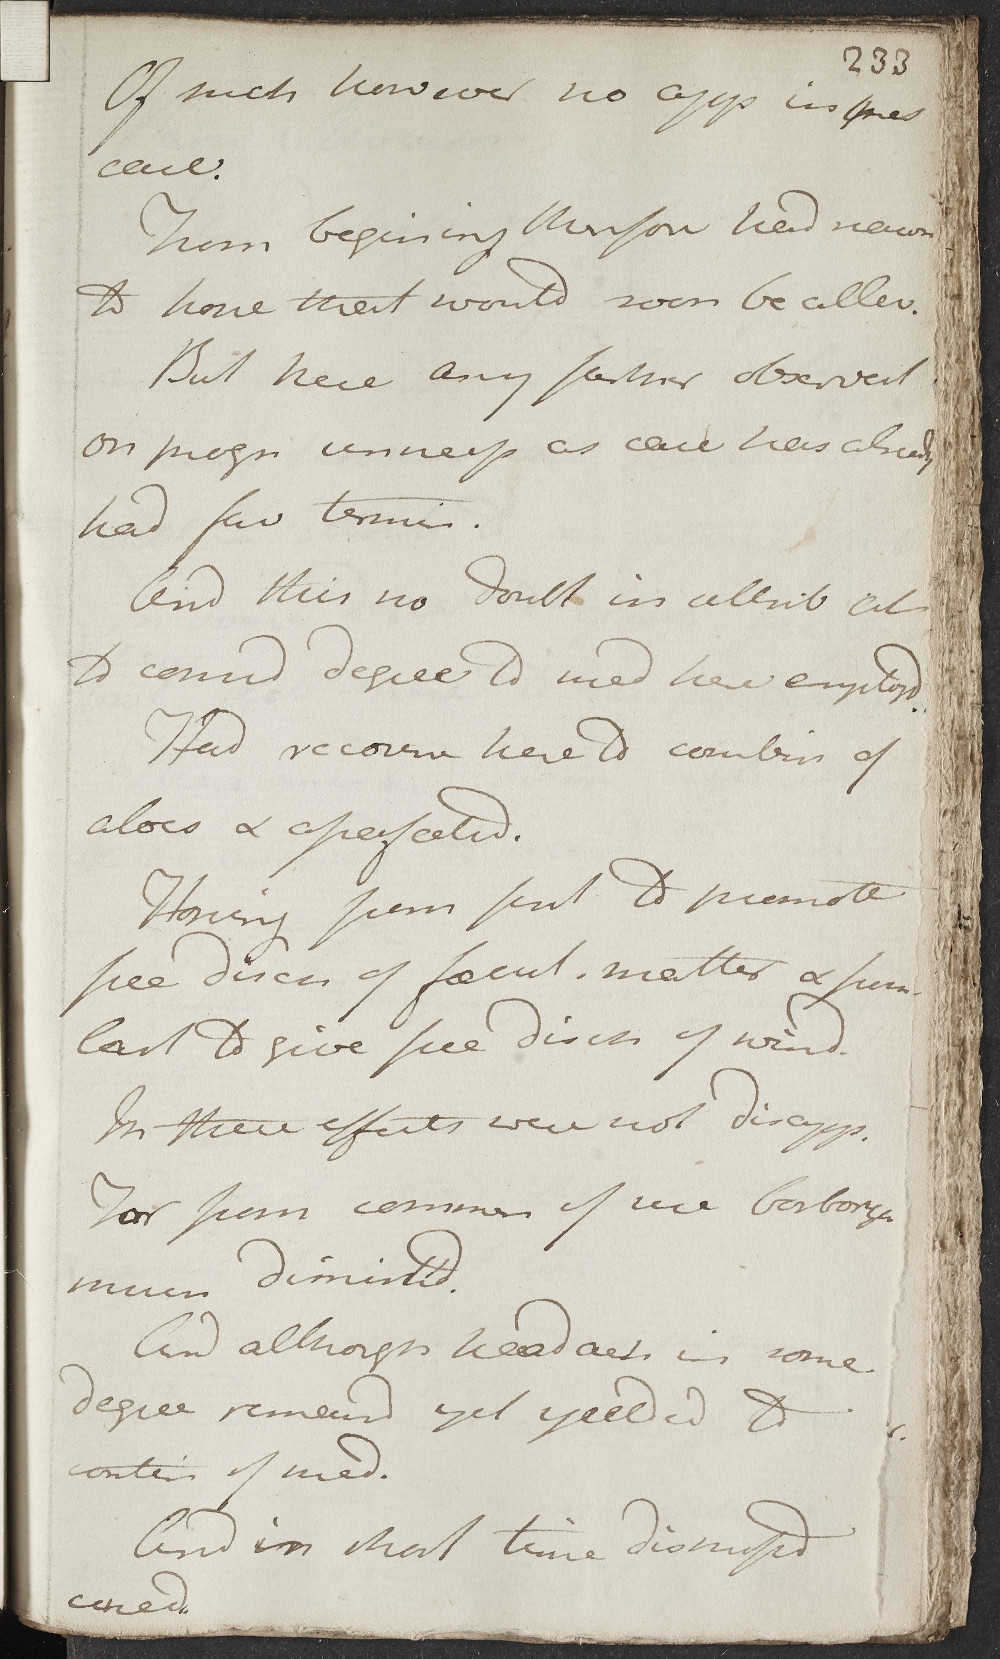 233
Of such however no app in pres
case.
From begining therefore had reason
to hope that would soon be allev.
But here any farther observat
on progn unnecess as case has already
had fav termin.
And this no doubt in attrib at
to consid degree to med here employd.
Had recourse here to combin of
aloes & assafoetid.
Hoping from first to promote
free disch of fœcul. matter & from
last to give free disch of wind.
In these effects were not disapp.
For from commen of use borboryg
much diminishd.
And although headach in some
degree remaind yet yeelded to
contin of med.
And in short time dismissd
cured.